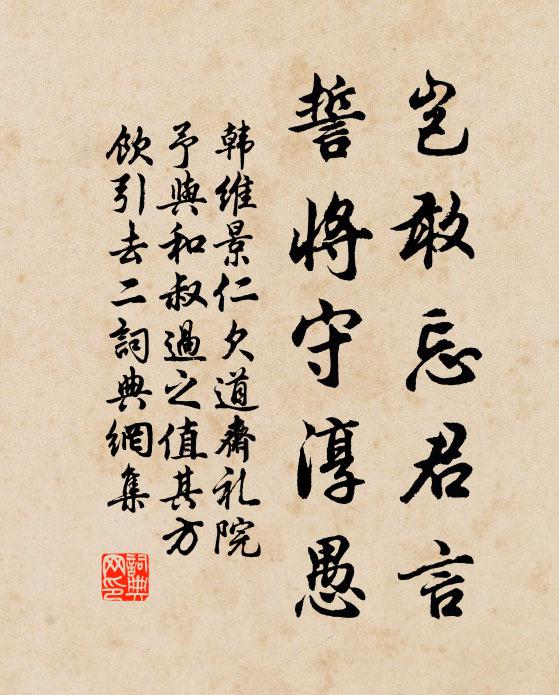 岂敢忘君言
誓将守淳愚
韩维景仁久道斋礼院
予与和叔过之值其方
饮引去二词典网集
詞典网印